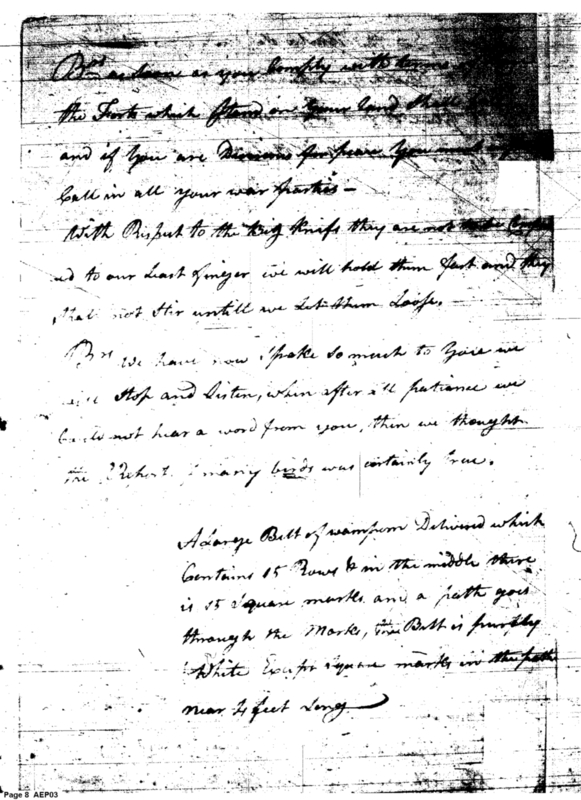 Brs as soon as you Comply with terms
the Forts which Stand on your land Shall
and if you are Desirous for peace You must
Call in all your war parties —
With Respect to the big Knifs they are not to be
ed to our Least finger we will hold them fast and they
Shall not Stir untill we Let them Loose.
Brs We have now Spoke so much to You we
will Stop and Listen, when after all patiance we
Could not hear a word from you, then we thought
the Report many birds was certainly true.
A Large Belt of wampum Delivered which
Contains 15 Rows & in the middle there
is 15 Square marks and a path goes
through the Marks, the Belt is
White Except Square marks in the path
near 4 feet Long
Page 8 AEP03